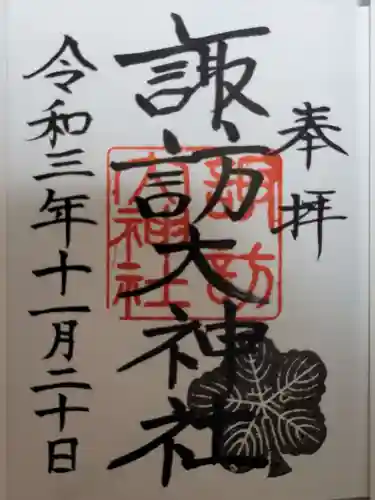 奉拝
諏訪大神社
令和三年十一月二十日
諏訪
大神社